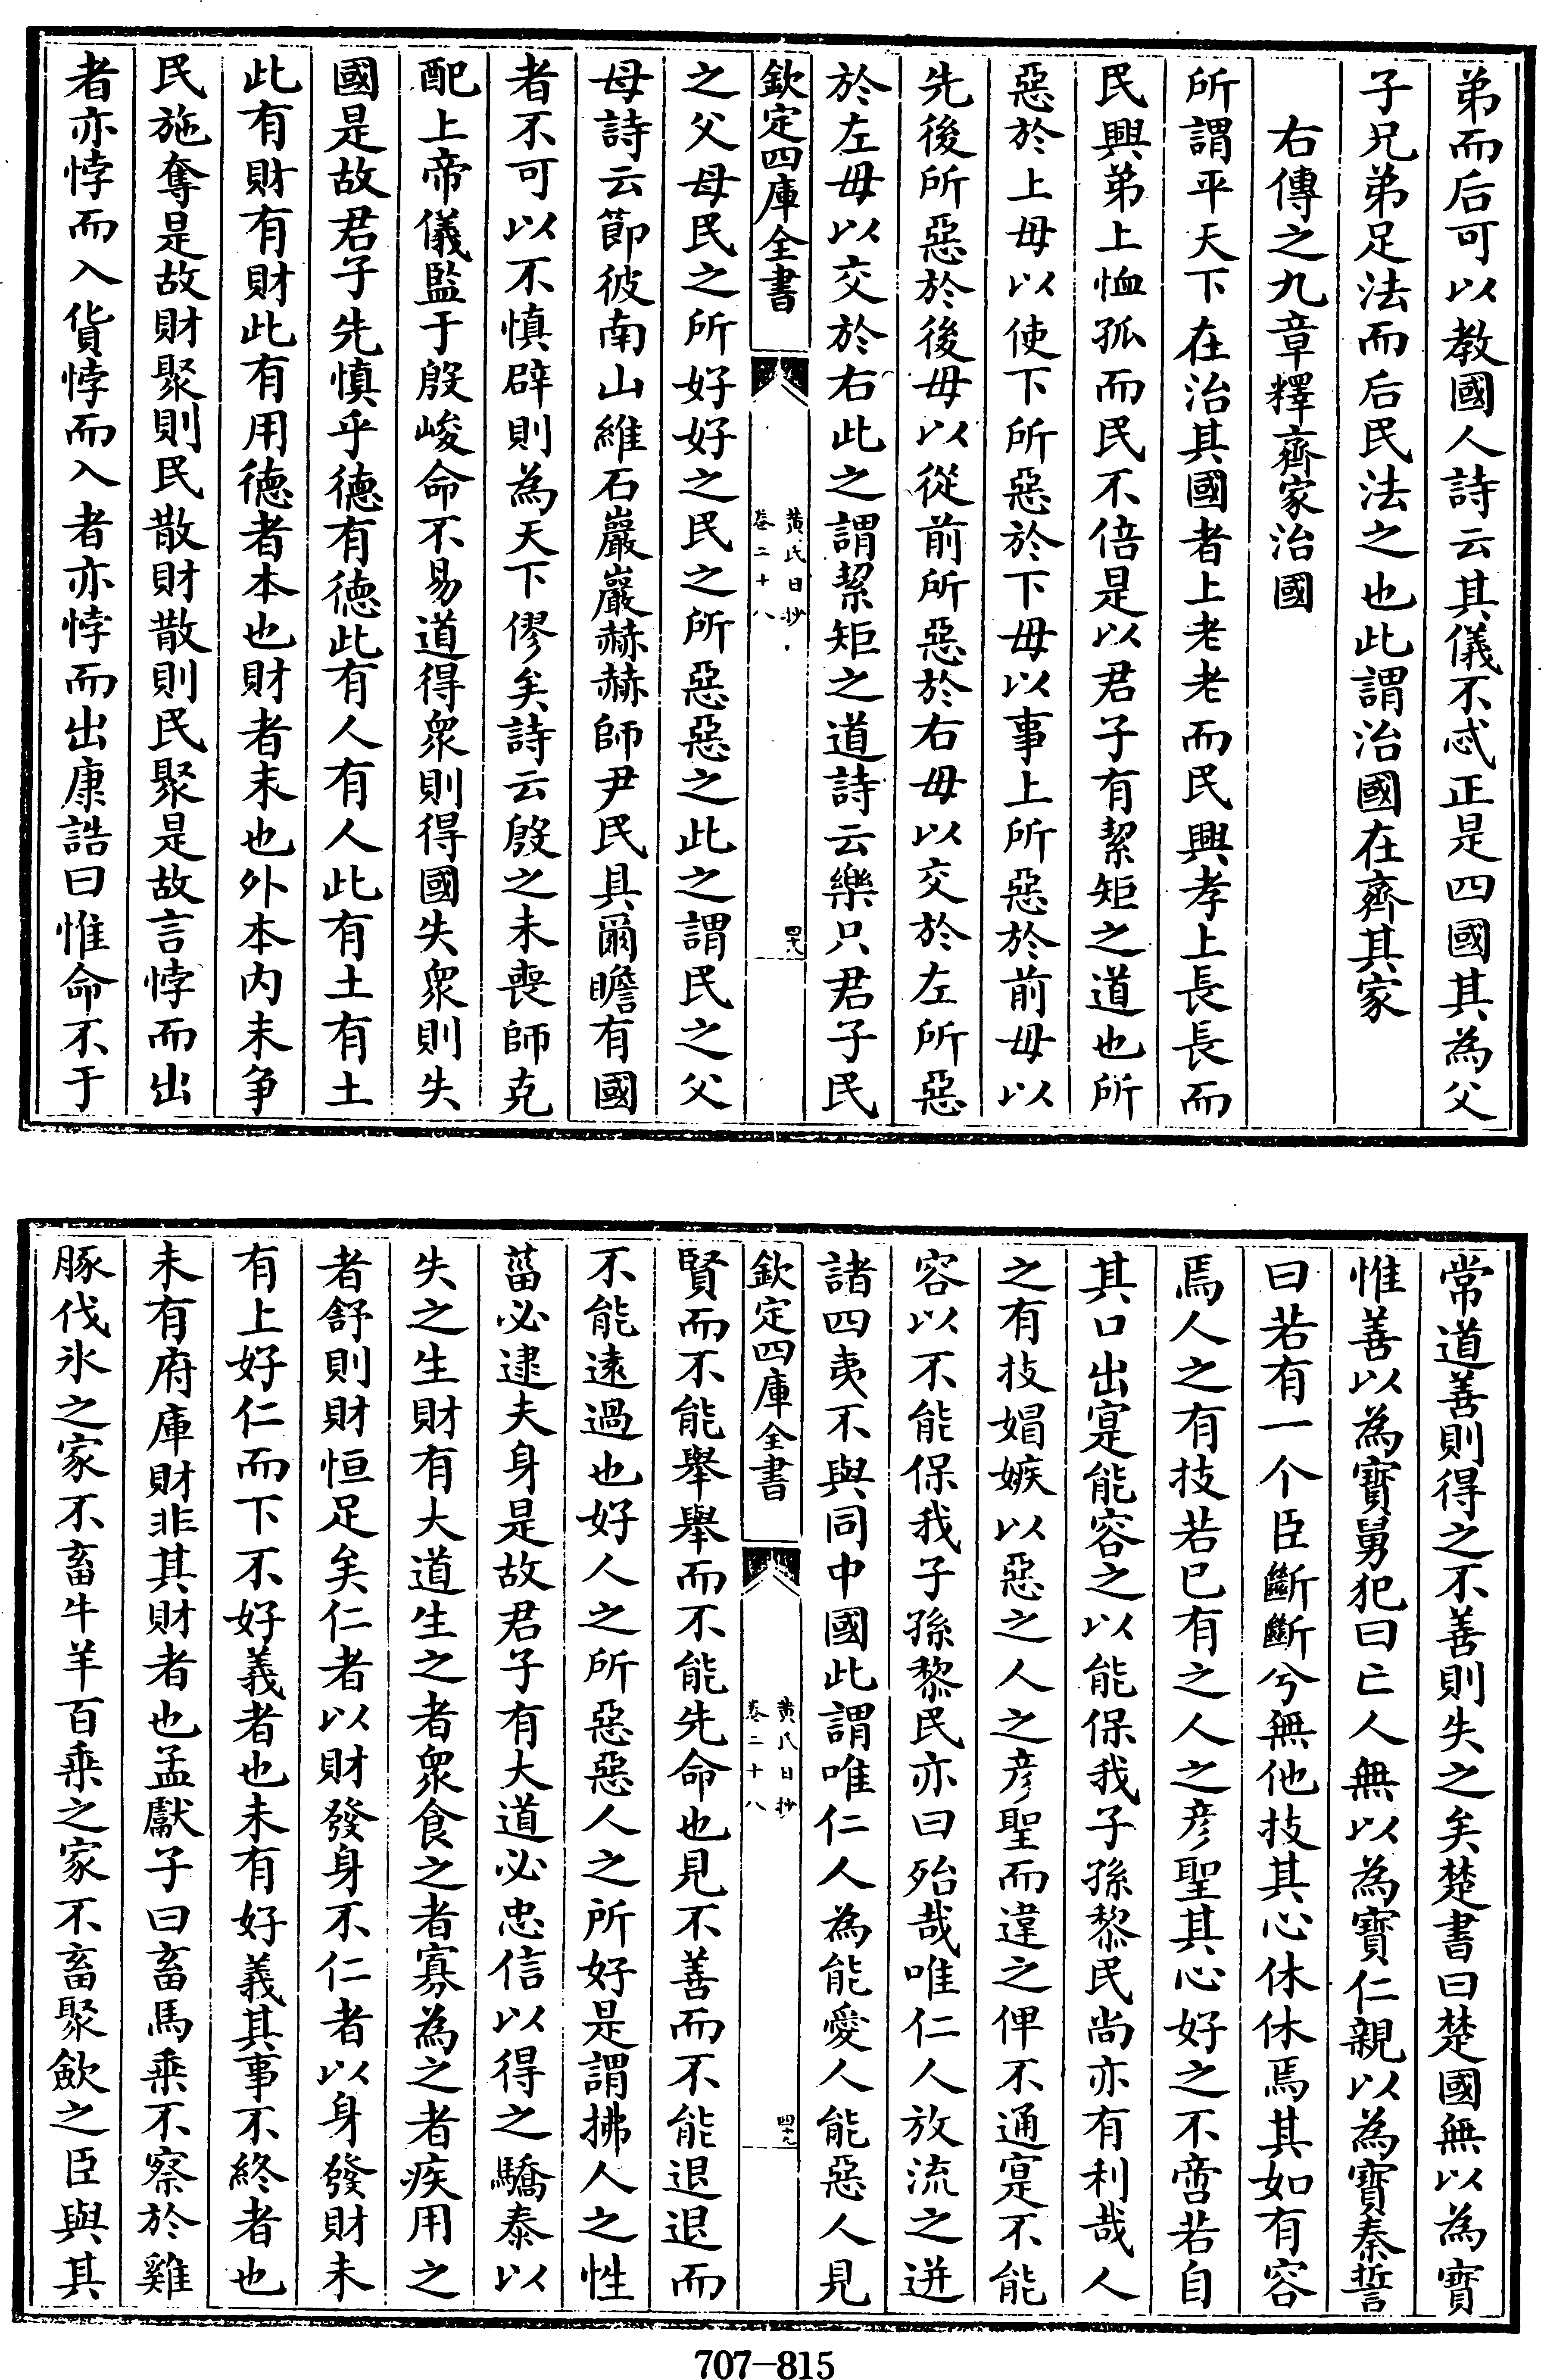 弟而后可以教國人詩云其儀不忒正是四國其為父
子兄弟足法而后民法之也此謂治國在齊其家
右傳之九章釋齊家治國
所謂平天下在治其國者上老老而民興孝上長長而
民興弟上恤孤而民不倍是以君子有絜矩之道也所
惡於上毋以使下所惡於下毋以事上所惡於前毋以
先後所惡於後毋以從前所惡於右毋以交於左所惡
於左毋以交於右此之謂絜矩之道詩云樂只君子民
欽定四庫全書
黃氏日抄
卷二十八
四十八
之父母民之所好好之民之所惡惡之此之謂民之父
母詩云節彼南山維石巖巖赫赫師尹民具爾瞻有國
者不可以不慎辟則為天下僇矣詩云殷之未喪師克
配上帝儀監于殷峻命不易道得衆則得國失衆則失
國是故君子先慎乎德有德此有人有人此有土有土
此有財有財此有用德者本也財者末也外本內末争
民施奪是故財聚則民散財散則民聚是故言悖而出
者亦悖而入貨悖而入者亦悖而出康誥曰惟命不于
常道善則得之不善則失之矣楚書曰楚國無以為寶
惟善以為寶舅犯曰亡人無以為寶仁親以為寶秦誓
曰若有一个臣斷斷兮無他技其心休休焉其如有容
焉人之有技若已有之人之彦聖其心好之不啻若自
其口出寔能容之以能保我子孫黎民尚亦有利哉人
之有技媢嫉以惡之人之彦聖而違之俾不通寔不能
容以不能保我子孫黎民亦曰殆哉唯仁人放流之迸
諸四夷不與同中國此謂唯仁人為能愛人能惡人見
欽定四庫全書
黃氏日抄
卷二十八
四十九
賢而不能舉舉而不能先命也見不善而不能退退而
不能逺過也好人之所惡惡人之所好是謂拂人之性
菑必逮夫身是故君子有大道必忠信以得之驕泰以
失之生財有大道生之者衆食之者寡為之者疾用之
者舒則財恒足矣仁者以財發身不仁者以身發財未
有上好仁而下不好義者也未有好義其事不終者也
未有府庫財非其財者也孟獻子曰畜馬乗不察於雞
豚伐氷之家不畜牛羊百乗之家不畜聚斂之臣與其
707-815